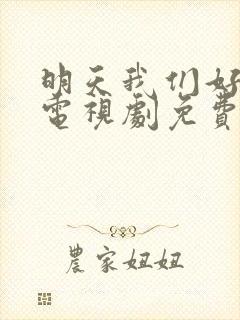 明天我们好
電視劇免費
農家妞妞